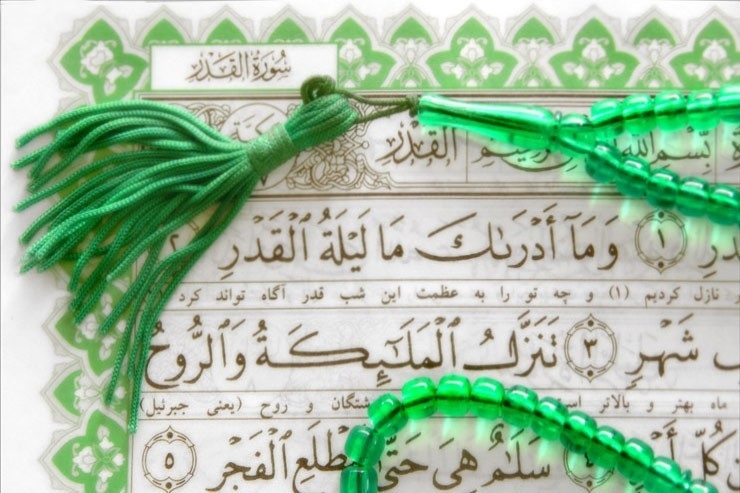 سُورَةُ القَدْرِ
بِسْمِ اللهِ القَدْرِ
وَمَآ أَدْرَىٰكَ مَا لَيْلَةُ ٱلْقَدْرِ ٢ ١
نازل کردیم (۱) و چه تو را به عظمت این شب قدر آگاه تواند کرد
شَهْرٍ ٣ تَنَزَّلُ ٱلْمَلَٰٓئِكَةُ وَٱلرُّوحُ
ماه بهتر و بالاتر و روح (یعنی جبرئیل)
كُلِّ ٤ سَلَٰمٌ هِىَ حَتَّىٰ مَطْلَعِ ٱلْفَجْرِ ٥